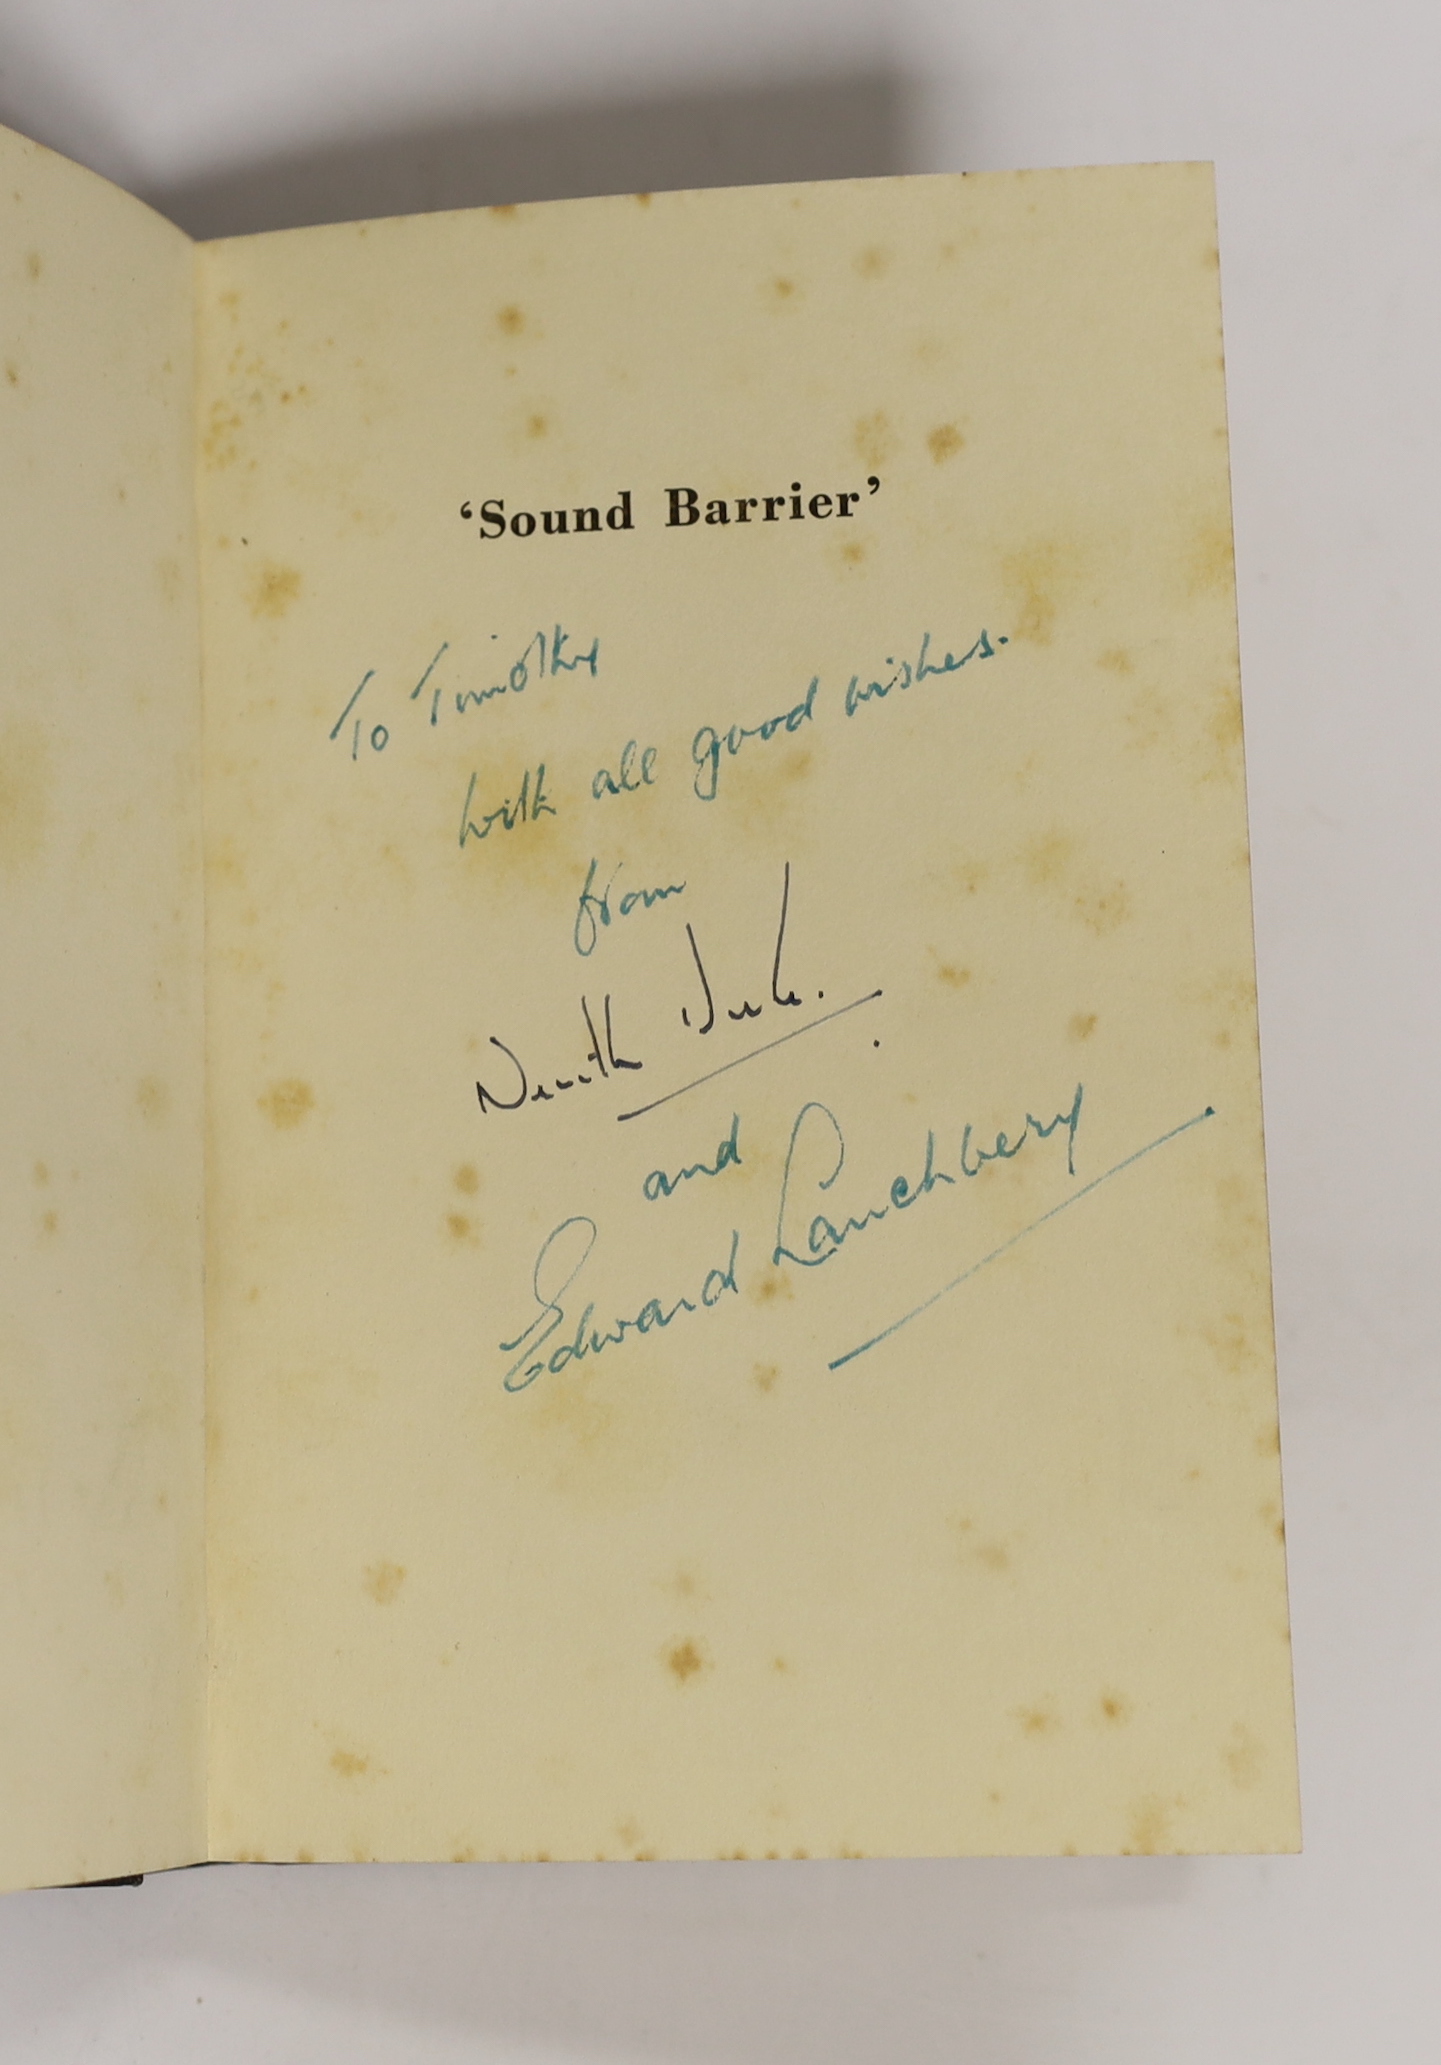 ‘Sound Barrier’
To Timothy
with all good wishes.
from
Neville Duke.
and
Edward Lanchbery